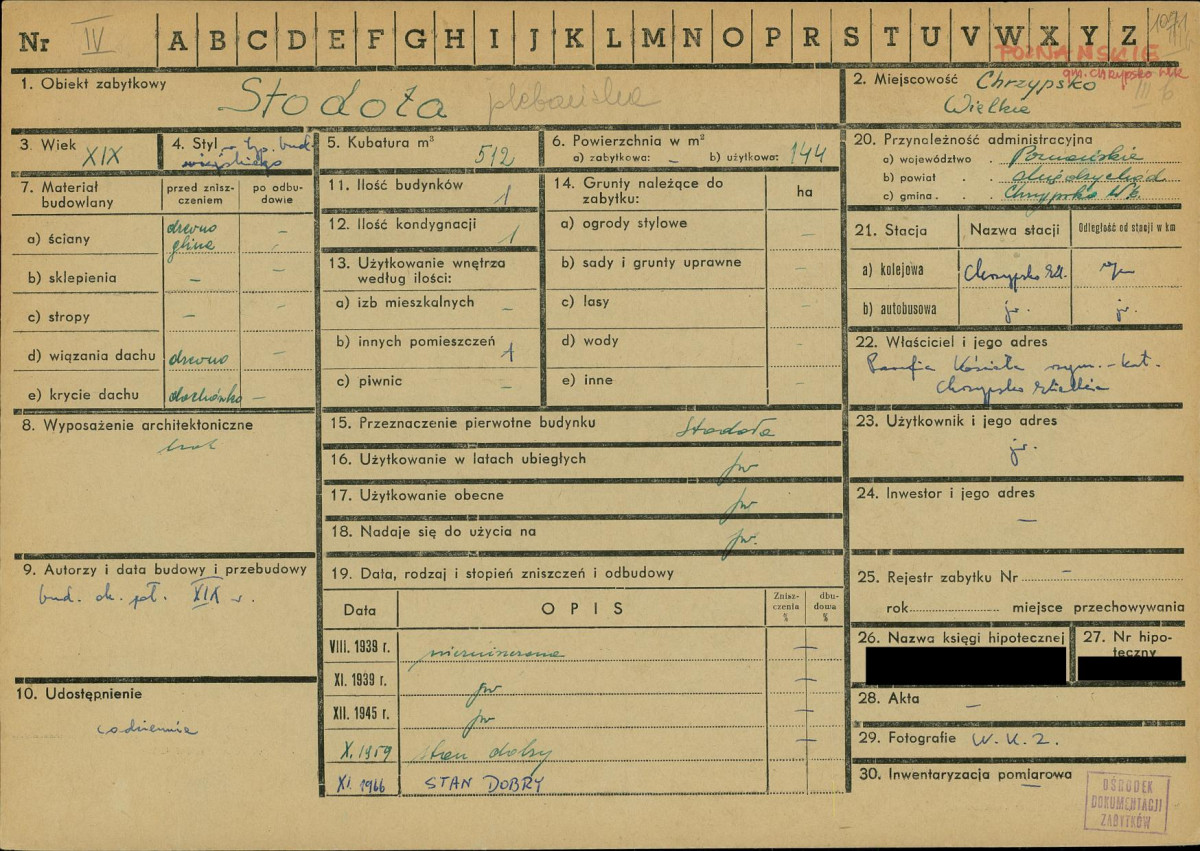 Nr IV A B C D E F G H I J K L M N O P R S T U V W X Y Z
1071
POZNAŃSKIE
gm. Chrzypsko Wlk
III 6
1. Obiekt zabytkowy Stodoła plebańska
2. Miejscowość Chrzypsko
Wielkie
3. Wiek XIX
4. Styl w typ. bud.
wiejskiego
5. Kubatura m³ 512
6. Powierzchnia w m²
a) zabytkowa: – b) użytkowa: 144
20. Przynależność administracyjna
a) województwo . Poznańskie
b) powiat . . Międzychód
c) gmina . . Chrzypsko Wlk.
7. Materiał
budowlany
przed znisz-
czeniem
po odbu-
dowie
a) ściany drewno –
glina –
b) sklepienia – –
c) stropy – –
d) wiązania dachu drewno –
e) krycie dachu dachówka –
8. Wyposażenie architektoniczne
brak
9. Autorzy i data budowy i przebudowy
bud. ok. poł. XIX w.
10. Udostępnienie
codziennie
11. Ilość budynków 1
12. Ilość kondygnacji 1
13. Użytkowanie wnętrza
według ilości:
a) izb mieszkalnych –
b) innych pomieszczeń 1
c) piwnic –
14. Grunty należące do
zabytku:
ha
a) ogrody stylowe –
b) sady i grunty uprawne –
c) lasy –
d) wody –
e) inne –
15. Przeznaczenie pierwotne budynku Stodoła
16. Użytkowanie w latach ubiegłych jw
17. Użytkowanie obecne jw
18. Nadaje się do użycia na jw.
19. Data, rodzaj i stopień zniszczeń i odbudowy
Data OPIS
Znisz-
czenia
%
dbu-
dowa
%
VIII. 1939 r. niezniszczona –
XI. 1939 r. jw –
XII. 1945 r. jw –
X. 1959 stan dobry –
XI. 1966 STAN DOBRY
21. Stacja Nazwa stacji Odległość od stacji w km
a) kolejowa Chrzypsko Wlk.
b) autobusowa jw. jw.
22. Właściciel i jego adres
Parafia Kościoła rzym.-kat.
Chrzypsko Wielkie
23. Użytkownik i jego adres
jw.
24. Inwestor i jego adres
–
25. Rejestr zabytku Nr –
rok miejsce przechowywania
26. Nazwa księgi hipotecznej
27. Nr hipo-
teczny
28. Akta –
29. Fotografie W.K.Z.
30. Inwentaryzacja pomiarowa
–
OŚRODEK
DOKUMENTACJI
ZABYTKÓW